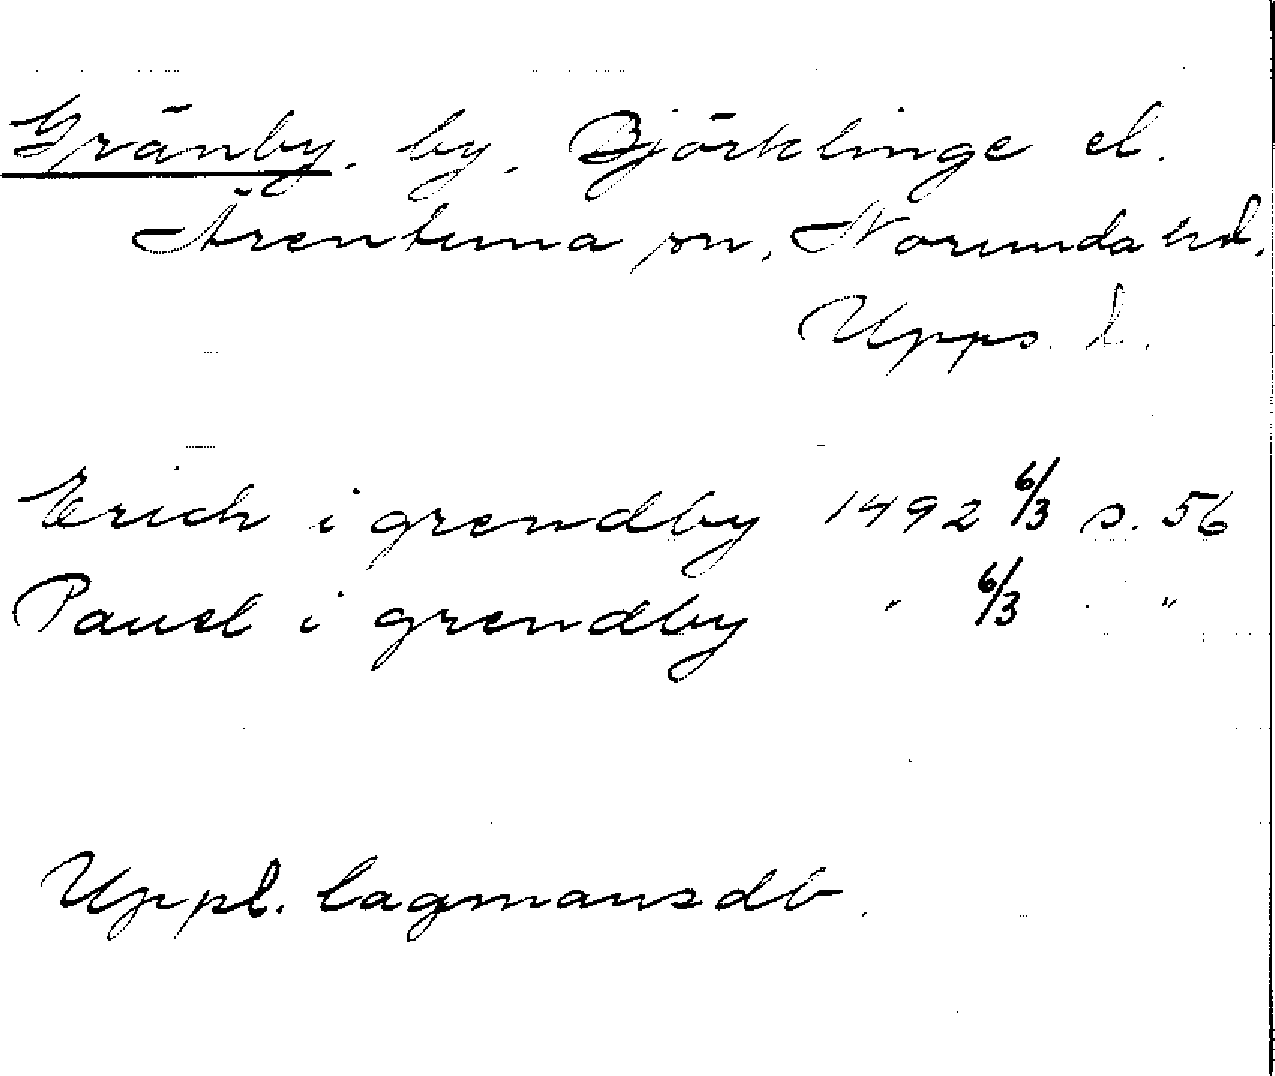 Gränby, by, Björklinge el.
Ärentuna sn, Norunda hd.
Upps. l.
Erich i grendby 1492 6/3 s. 56
Pauel i grendby " 6/3 " "
Uppl. lagmansdb.